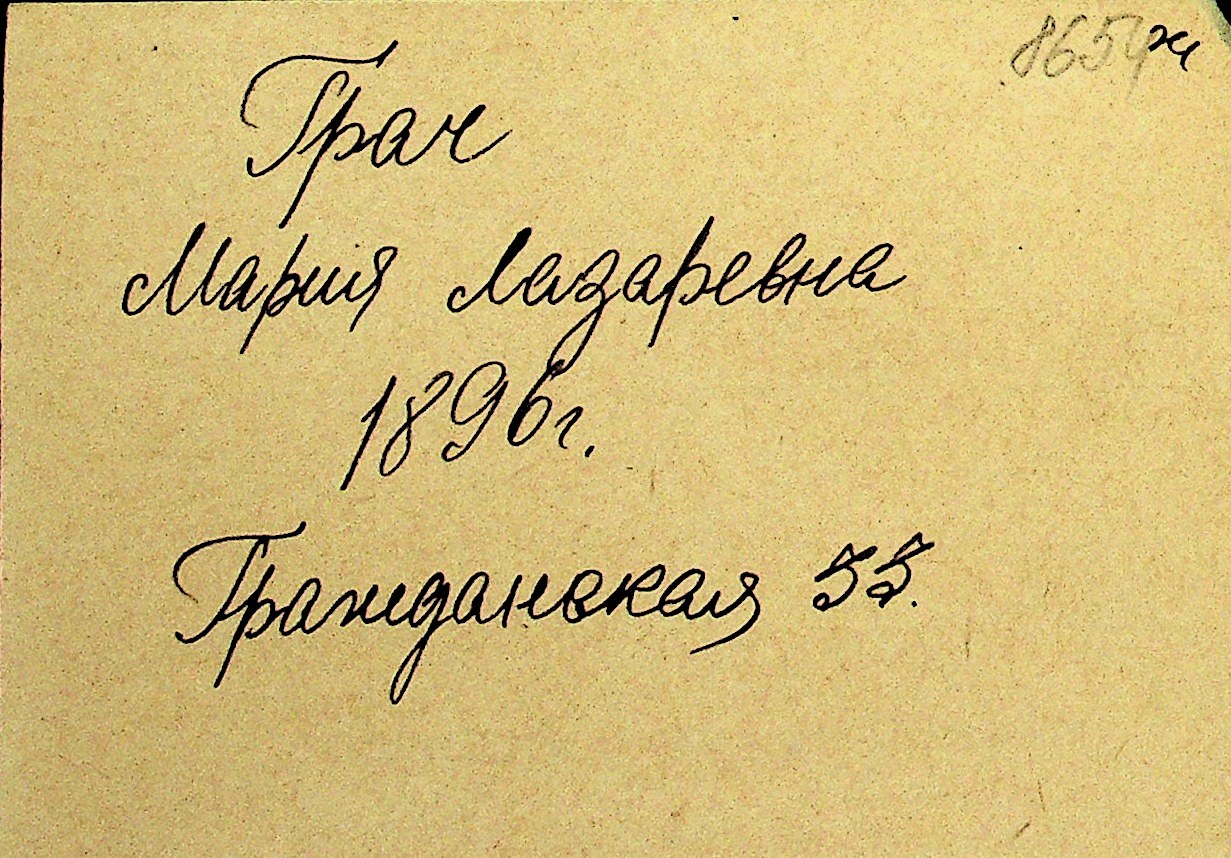 8654ж
Грач
Мария Лазаревна
1896г.
Гражданская 55.